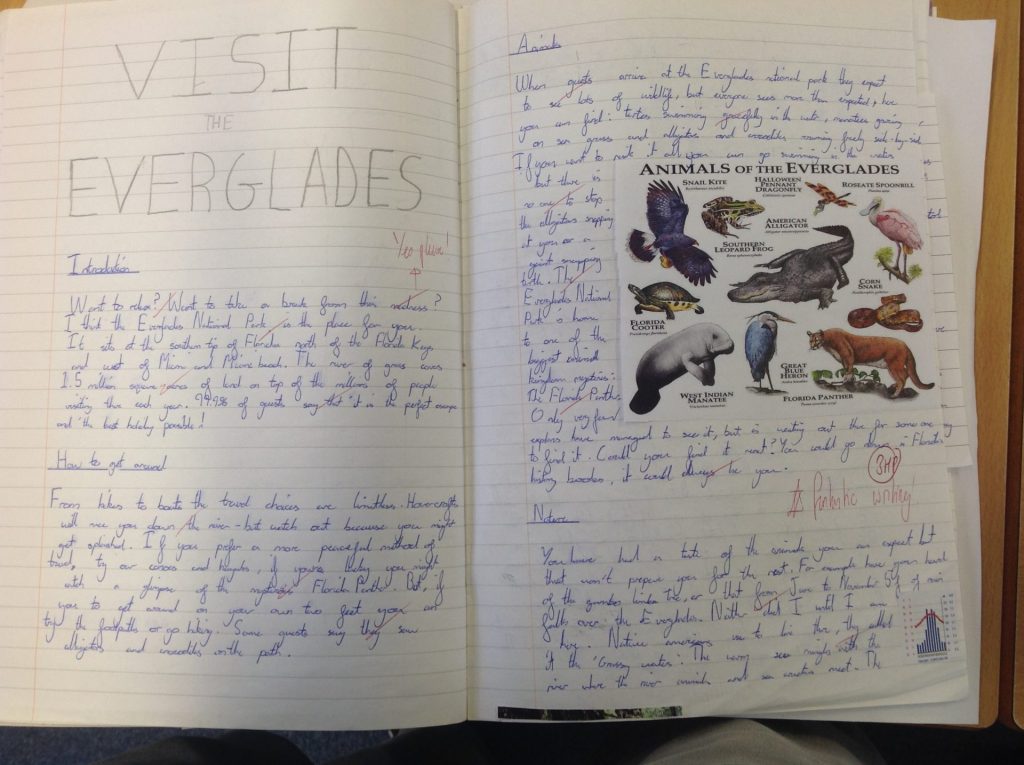 VISIT
THE
EVERGLADES
Yes please!
Introduction
Want to relax? Want to take a break from this madness?
I think the Everglades National Park is the place for you.
It sits at the southern tip of Florida north of the Florida Keys
and west of Miami and Miami beach. The river of grass covers
1.5 million square acres of land on top of the millions of people
visiting there each year. 99.9% of guests say that it is the perfect escape
and 'the best holiday possible'!
How to get around
From hikes to boats the travel choices are limitless. Hovercrafts
will race you down the river - but watch out because you might
get splashed. If you prefer a more peaceful method of
travel, try our canoes and kayaks, if you're lucky you might
catch a glimpse of the mysterious Florida Panther. But, if
you to get around on your own two feet you can
try the footpaths or go hiking. Some guests say they saw
alligators and crocodiles on the path.
Animals
When guests arrive at the Everglades national park they expect
to see lots of wildlife, but everyone sees more than expected, here
you can find: turtles swimming gracefully in the water, manatees grazing
on sea grass and alligators and crocodiles roaming freely side-by-side
If you want to risk it all you can go swimming in the waters
but there is
no one to stop
the alligators snapping
at you or a
giant snapping
turtle. The
Everglades National
Park is home
to one of the
biggest animal
kingdom mysteries:
The Florida Panther.
Only very few
explorers have managed to see it, but is waiting out there for someone
to find it. Could you find it next? You would go down in Florida's
history books, it could always be you.
ANIMALS OF THE EVERGLADES
SNAIL KITE
HALLOWEEN
PENNANT
DRAGONFLY
ROSEATE SPOONBILL
AMERICAN
ALLIGATOR
SOUTHERN
LEOPARD FROG
CORN
SNAKE
FLORIDA
COOTER
GREAT
BLUE
HERON
WEST INDIAN
MANATEE
FLORIDA PANTHER
3HP
Fantastic writing!
Nature
You have had a taste of the animals you can expect but
that won't prepare you for the rest. For example have you heard
of the gumbo limbo tree, or that from June to November 5ft of rain
falls over the Everglades. Neither did I until I came
here. Native americans use to live there, they called
it the 'Grassy waters'. The warm sea mingles with the
river where the river animals and sea creatures meet. The